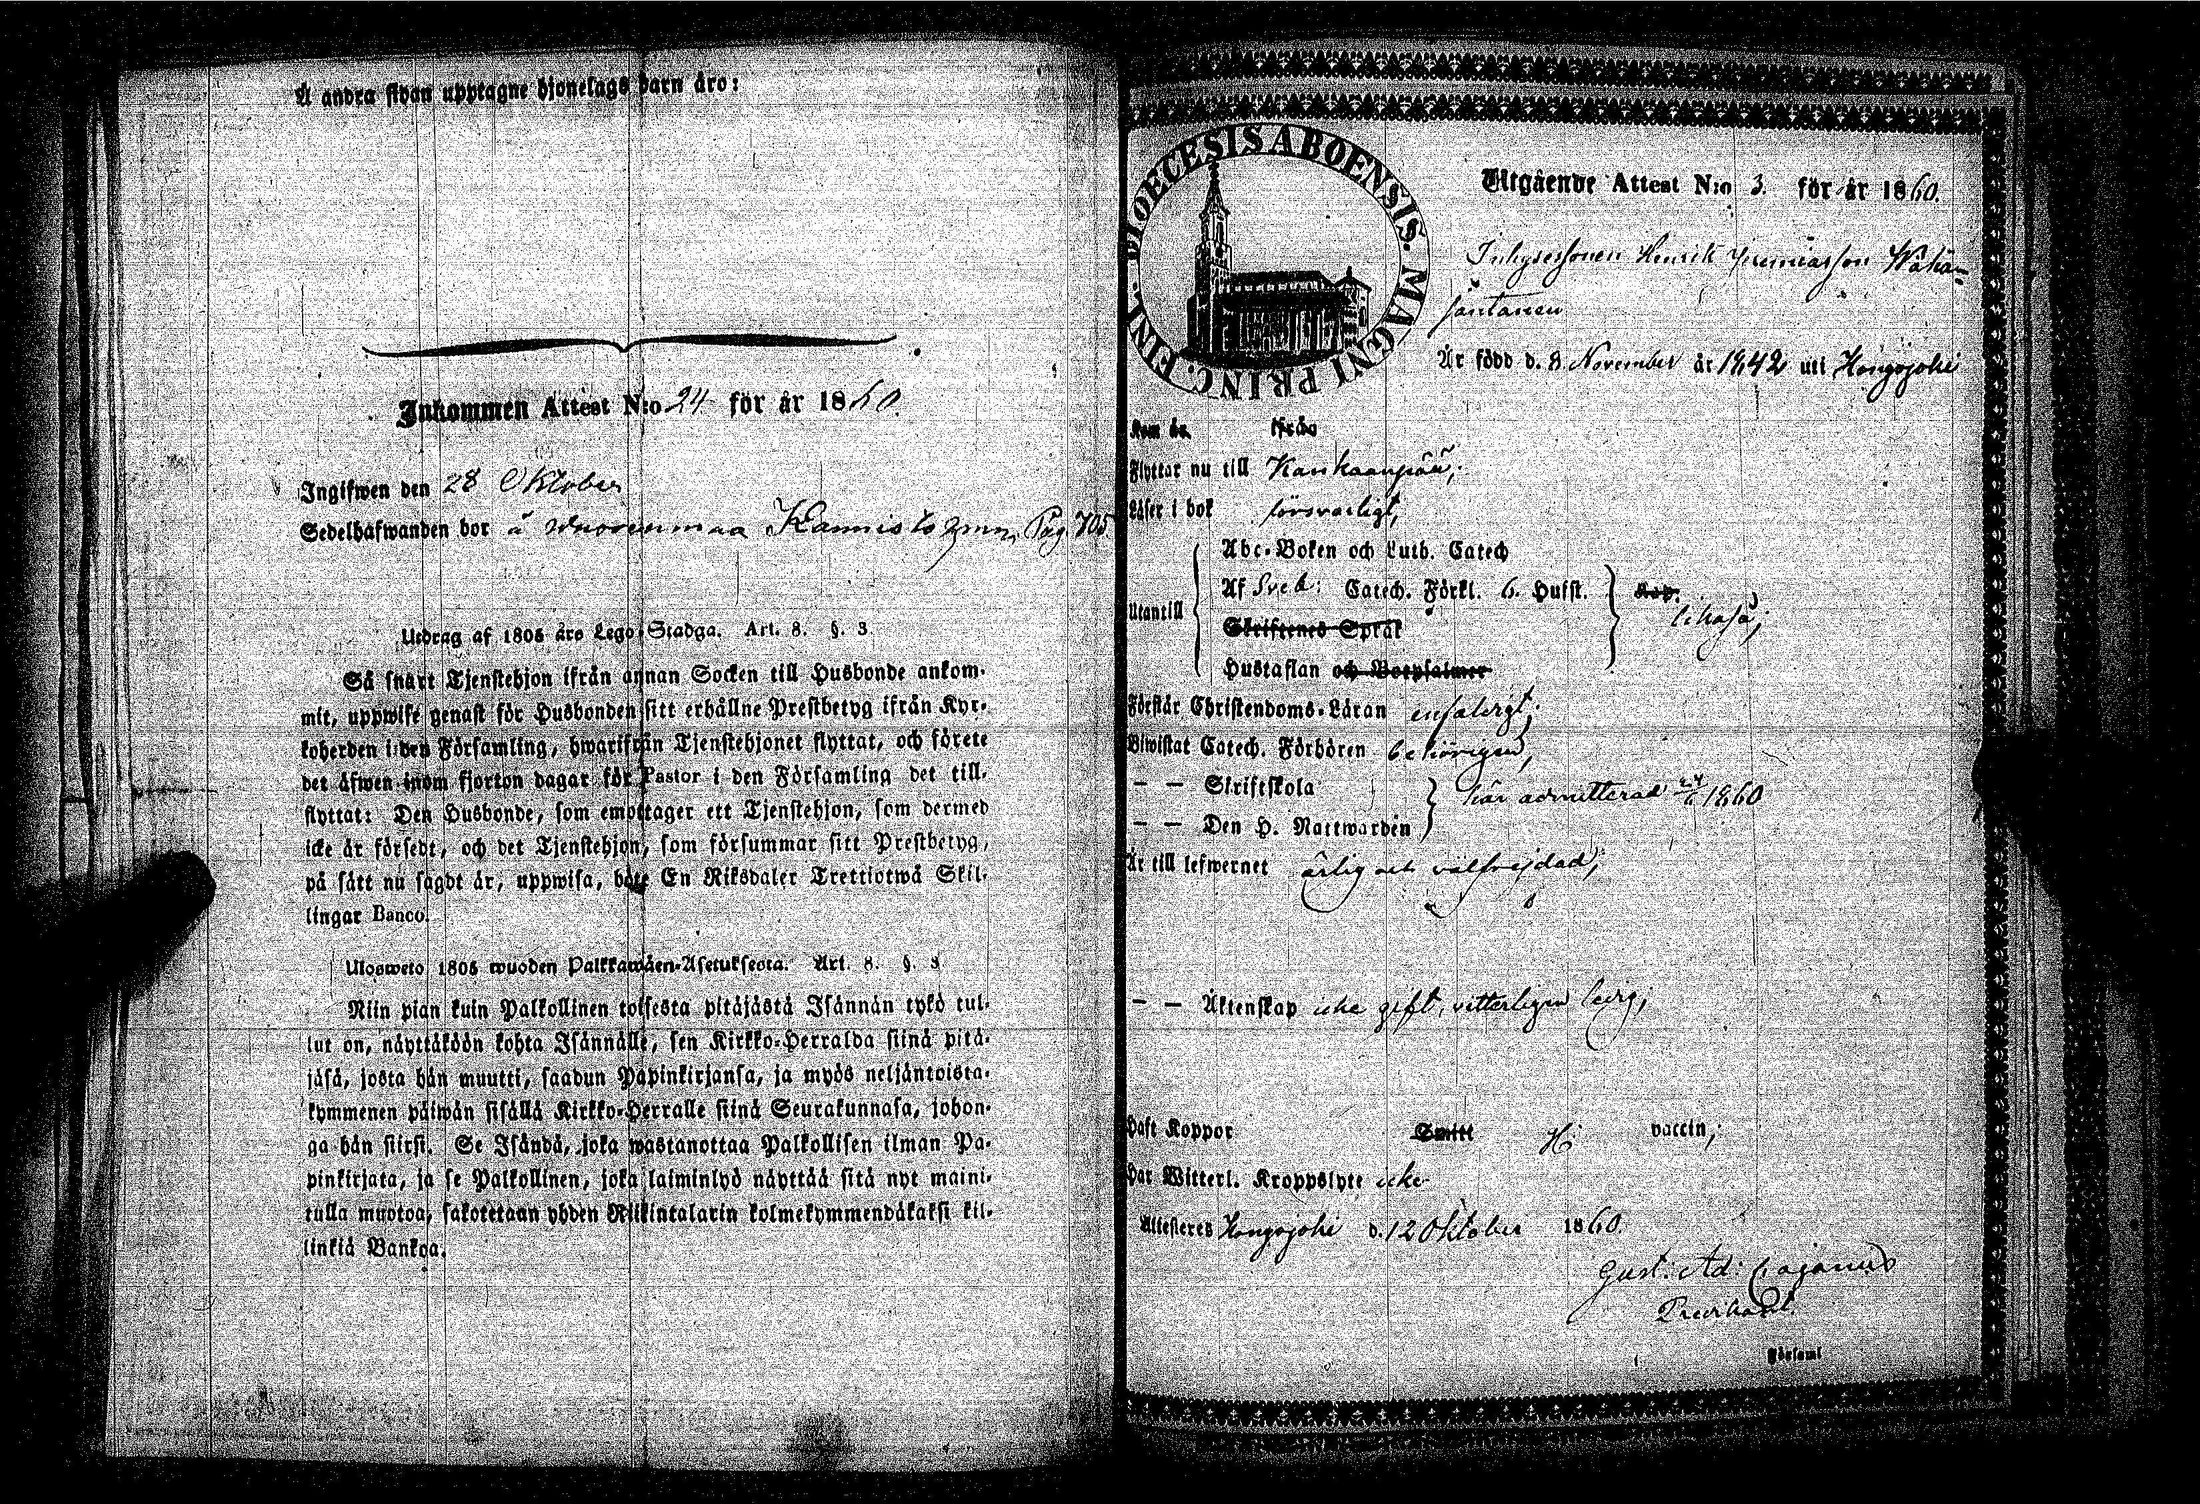 Å andra sidan upptagne hjonelags barn äro:
Inkommen Attest N:o 24 för år 1860.
Ingifwen den 28 Oktober
Sedelhafwanden bor å Kannisto Pag. 705.
Utdrag af 1805 års Lego-Stadga. Art. 8. §. 3
Så snart Tjenstehjon ifrån annan Socken till Husbonde ankom-
mit, uppwise genast för Husbonden sitt erhållne Prestbetyg ifrån Kyr-
koherden i den Församling, hwarifrån Tjenstehjonet flyttat, och förete
det äfwen inom fjorton dagar för Pastor i den Församling det till-
flyttat: Den Husbonde, som emottager ett Tjenstehjon, som dermed
icke är försedt, och det Tjenstehjon, som försummar sitt Prestbetyg,
på sätt nu sagdt är, uppwisa, böte En Riksdaler Trettiotwå Skil-
lingar Banco.
Ulosweto 1805 wuoden Palkkawäen-Asetuksesta. Art. 8. §. 3
Niin pian kuin Palkollinen toisesta pitäjästä Isännän tykö tul-
lut on, näyttäköön kohta Isännälle, sen Kirkko-Herralda siinä pitä-
jäsä, josta hän muutti, saadun Papinkirjansa, ja myös neljäntoista-
kymmenen päiwän sisällä Kirkko-Herralle siinä Seurakunnasa, johon-
ga hän siirsi. Se Isändä, joka wastanottaa Palkollisen ilman Pa-
pinkirjata, ja se Palkollinen, joka laiminlyö näyttää sitä nyt maini-
tulla muotoa, sakotetaan yhden Riikintalarin kolmekymmendäkaksi kil-
linkiä Bankoa.
DIOECESIS ABOENSIS. MAGNI PRINC. FINL.
Utgående Attest N:o 3. för år 1860.
Inhysessonen Henrik Jeremiasson Wähä-
säntanen
Är född d. 8 November år 1842 uti Hongojoki
Kom år ifrån
Flyttar nu till Kankaanpää;
Läser i bok försvarligt,
Abc-Boken och Luth. Catech
Af Sveb: Catech. Förkl. 6. Hufst.
Utantill
Skriftenes Språk
likaså;
Hustaflan och Botpsalmer
Förstår Christendoms-Läran enfaldigt;
Biwistat Catech. Förhören behörigen,
— — Skriftskola
här admitterad 24/6 1860
— — Den H. Nattwarden
Är till lefwernet ärlig och välfrejdad;
— — Äktenskap icke gift, vitterligen ledig;
Haft Koppor Smitt vaccin;
Har Witterl. Kroppslyte icke
Attesteres Hongojoki d. 12 Oktober 1860.
Gust: Ad: Cajanus
Församl